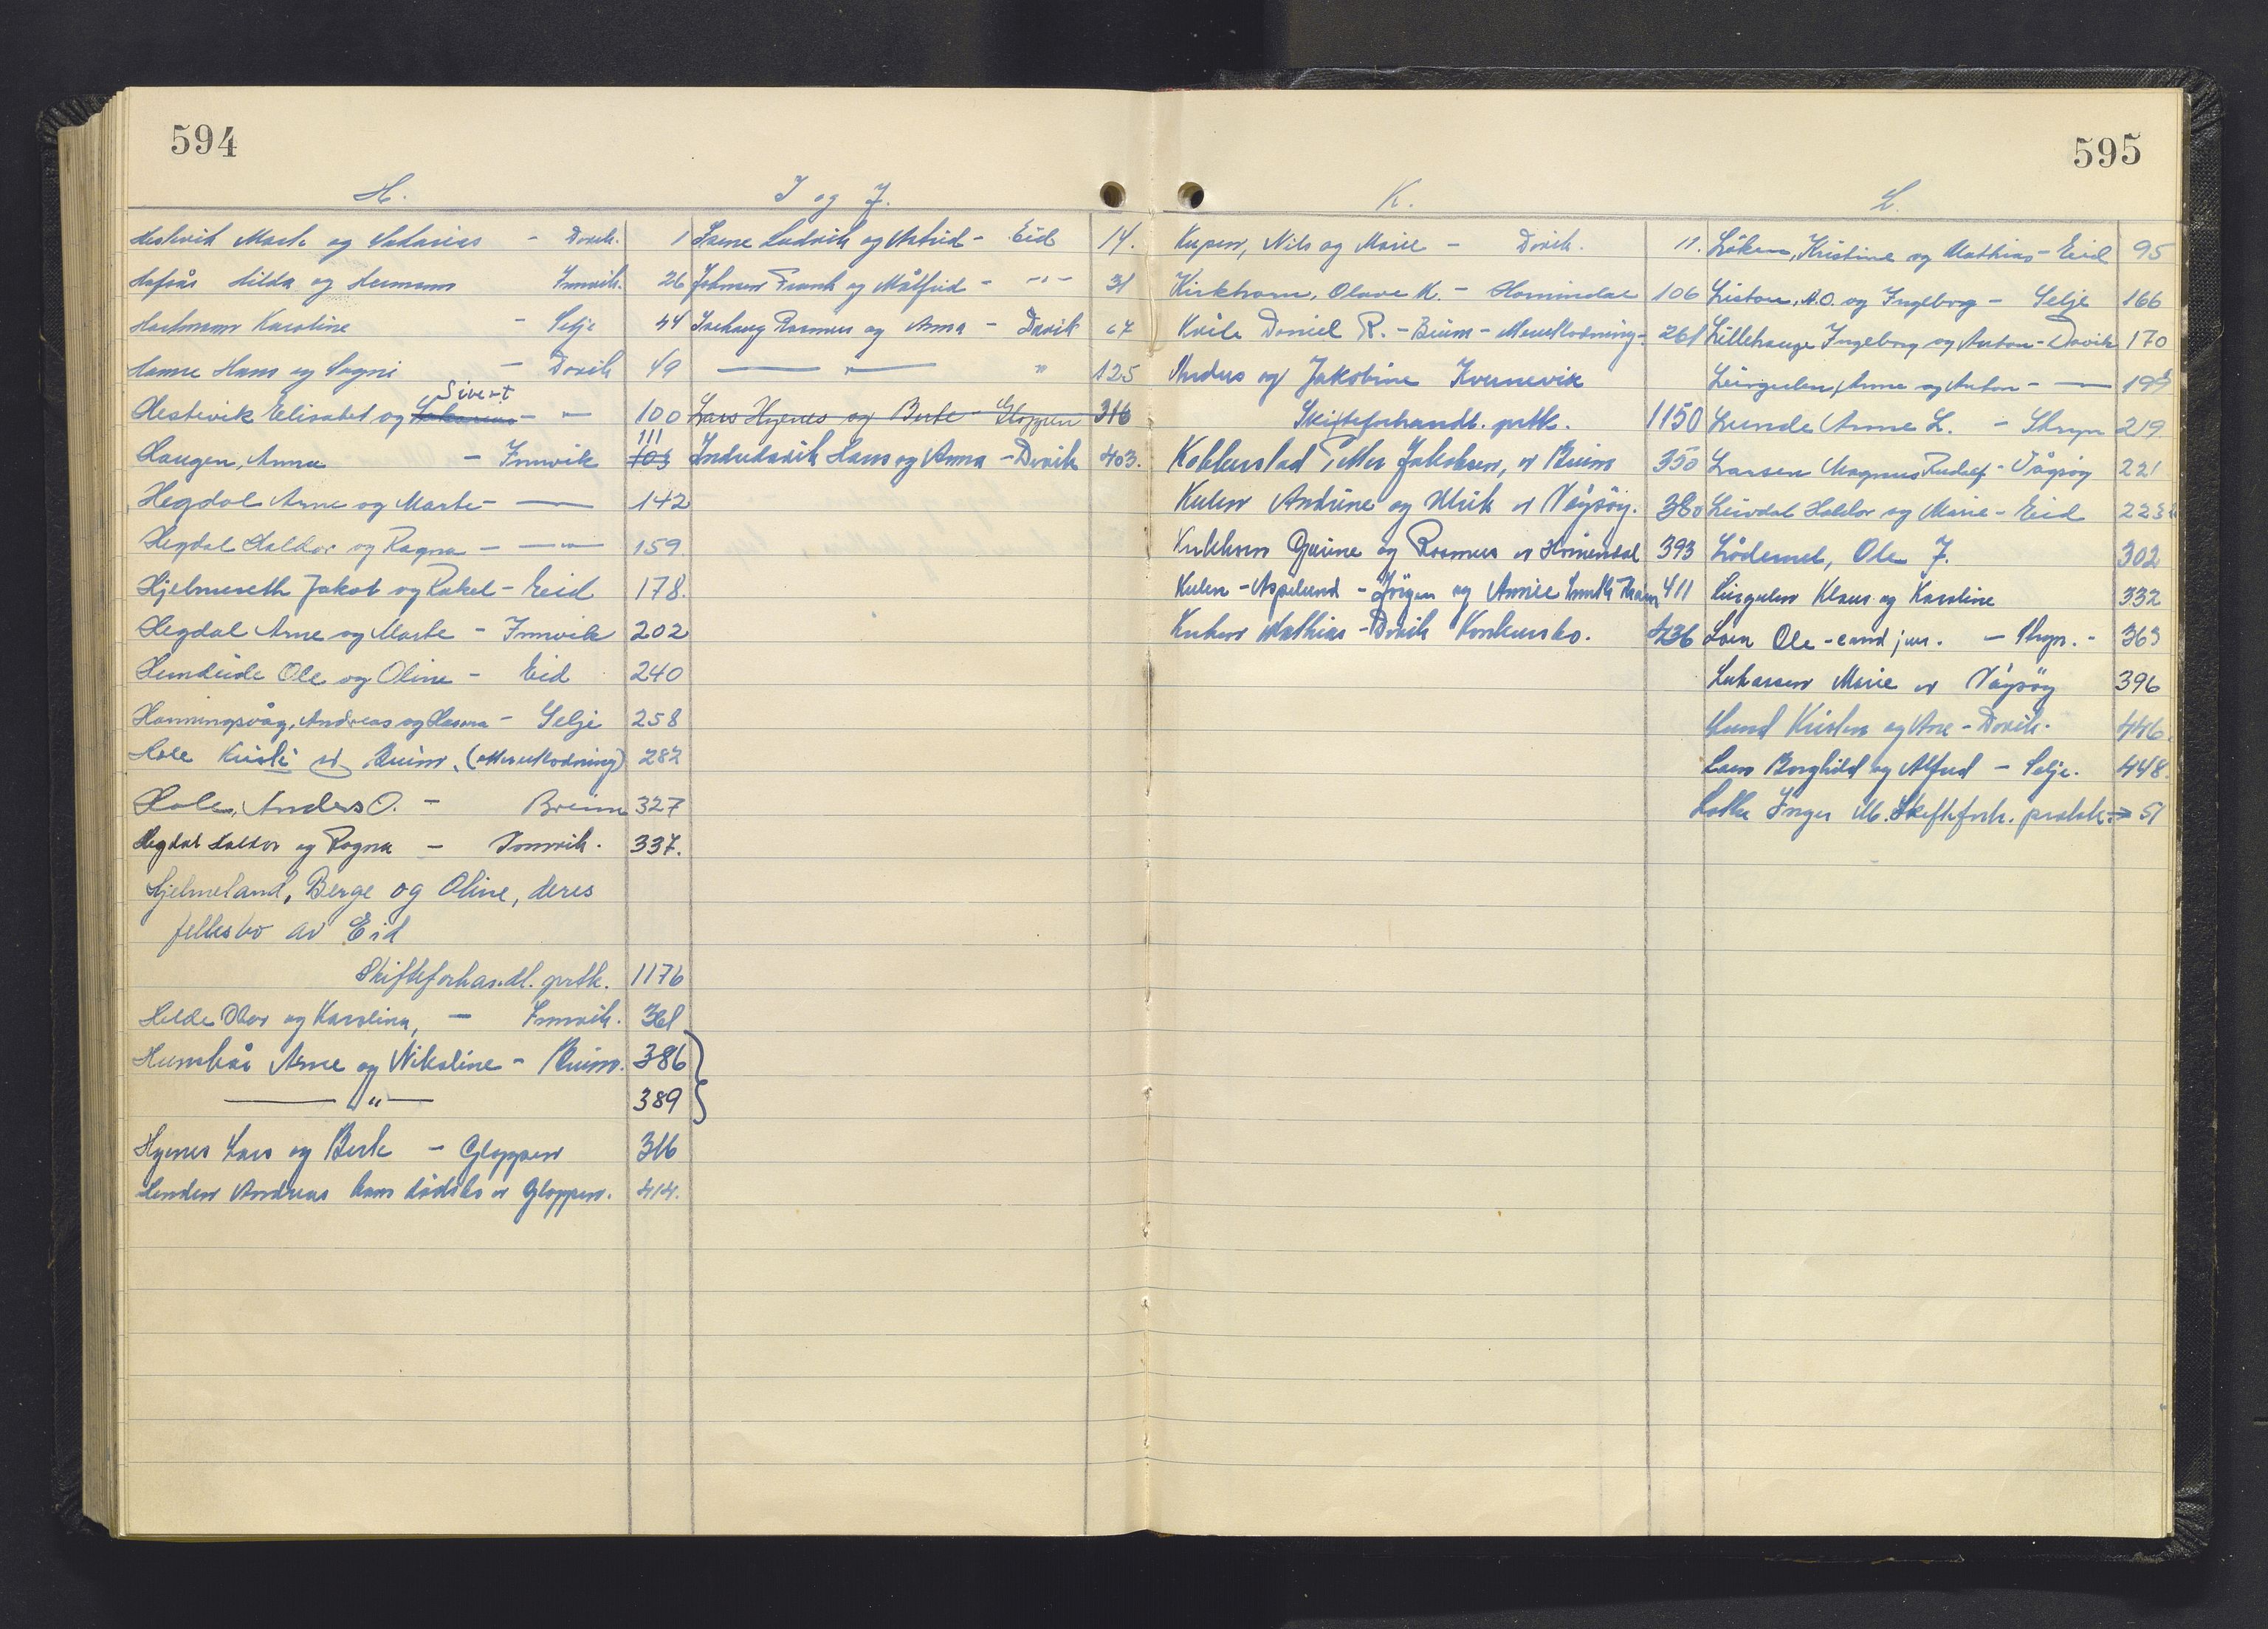 594
H.
Hestevik Marte og Sakarias - Davik. 1
Hafsås Hilda og Hermann Innvik. 26
Hartmann Karoline - Selje 44
Hamre Hans og Sogni - Davik 49
Sivert
Hestevik Elisabet og - " - 100
111
Haugen, Anna - Innvik 103
Hegdal Arne og Marte - — 142
Hegdal Haldor og Ragna - — " — 159
Hjelmeseth Jakob og Rakel - Eid 178.
Hegdal Arne og Marte - Innvik 202
Hundeide Ole og Oline - Eid 240
Hanningsvåg, Andreas og Hasma - Selje 258
Hole Kirsti av Breim. (Mæruttodning) 282
Hole, Anders O. - Breim 327
Hegdal Haldor og Ragna - Innvik. 337.
Hjelmeland, Berge og Oline, deres
fellesbo av Eid
Skifteforhandl. protk. 1176
Helde Olav og Karolina, - Innvik. 361
Arne og Nikoline - Breim. 386
— " — 389
Hyenes Lars og Berte - Gloppen 316
Henden Andreas hans dødsbo av Gloppen. 414.
I og J.
Isene Ludvik og Astrid - Eid 14.
Johnsen Frank og Målfrid - - " - 31
Isehaug Rasmus og Anna - Davik 67
— " — " 125
Lars Hyenes og Berte - Gloppen 316
Indrehavik Hans og Anna - Davik 403.
595
K.
Kupen, Nils og Marie - Davik. 11.
Kirkhorn, Olave K. - Hornindal 106
Kvile Daniel R. - Breim - 261
Andreas og Jakobine Kvernevik
Skifteforhandl. protk. 1150
Petter Jakobsen, av Breim 350
Andrine og Ulrik av Vågsøy. 380
og Rasmus av Hornindal 393
- Aspelund - Jørgen og 411
Mathias - Davik Konkursbo. 436
L.
Løken, Kristine og Mathias - Eid 95
Liston, A.O. og Ingeborg - Selje 166
Lillehauge Ingeborg og Anton - Davik 170
Leirgulen, Anna og Anton - — 199
Lunde Anne L. - Stryn 219
Larsen Magnus Rudolf - Vågsøy 221
Leivdal Haldor og Marie - Eid 223
Lødemel, Ole J. 302
Leirgulen Klaus og Karoline 332
Loen Ole - cand jur. - Stryn. - 363
Lukassen Marie av Vågsøy 396
Lund Kristen og Ane - Davik. 446.
Borghild og Alfred - Selje. 448.
Inger M. Skifteforh. protok. → 51